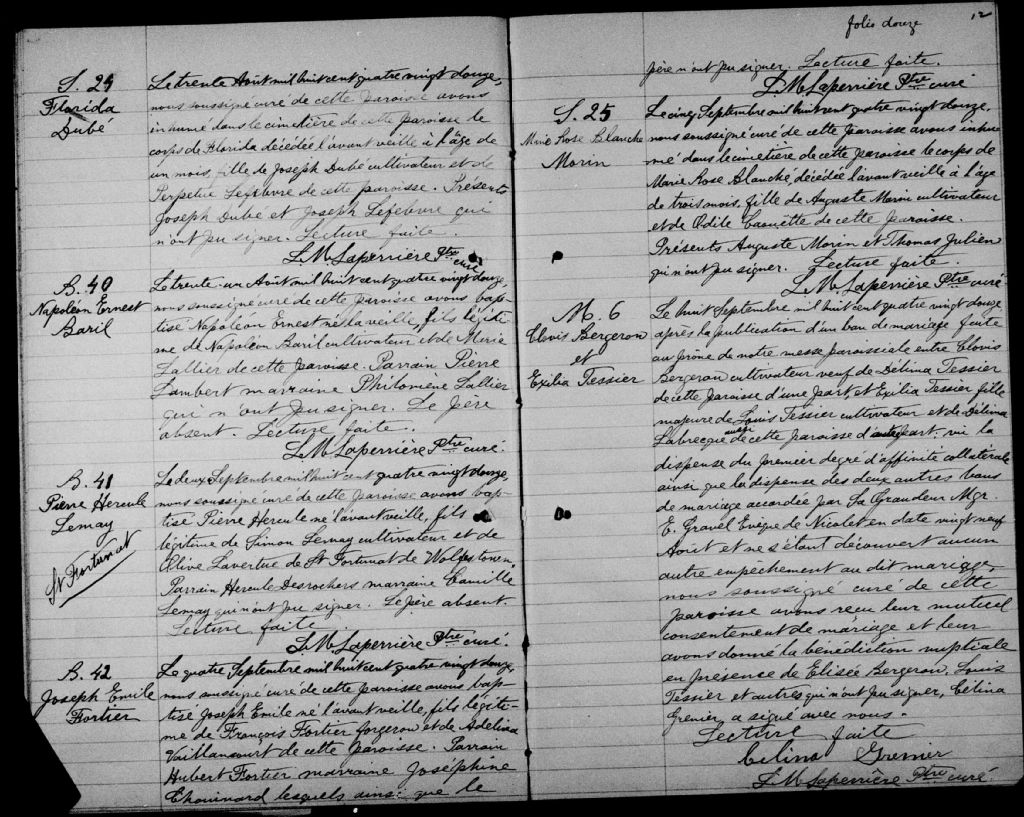 S. 24
Florida
Dubé
Le trente Août mil huit cent quatre vingt douze,
nous soussigné curé de cette paroisse avons
inhumé dans le cimetière de cette paroisse le
corps de Florida décédée l'avant veille à l'âge de
un mois, fille de Joseph Dubé cultivateur et de
Perpetue Lefebvre de cette paroisse. Présents
Joseph Dubé et Joseph Lefebvre qui
n'ont pu signer. Lecture faite.
L. M. Laperrière Ptre curé
B. 40
Napoléon Ernest
Baril
Le trente-un Août mil huit cent quatre vingt douze,
nous soussigné curé de cette paroisse avons bap-
tisé Napoléon Ernest né la veille, fils légiti-
me de Napoléon Baril cultivateur et de Marie
Lallier de cette paroisse. Parrain Pierre
Lambert marraine Philomène Lallier
qui n'ont pu signer. Le père
absent. Lecture faite.
L. M. Laperrière Ptre curé.
B. 41
Pierre Hercule
Lemay
St Fortunat
Le deux Septembre mil huit cent quatre vingt douze,
nous soussigné curé de cette paroisse avons bap-
tisé Pierre Hercule né l'avant veille, fils
légitime de Simon Lemay cultivateur et de
Olive Lavertue de St Fortunat de Wolfestown,
Parrain Hercule Desrochers marraine Camille
Lemay qui n'ont pu signer. Le père absent.
Lecture faite
L. M. Laperrière Ptre curé.
B. 42
Joseph Emile
Fortier
Le quatre Septembre mil huit cent quatre vingt douze,
nous soussigné curé de cette paroisse avons bap-
tisé Joseph Emile né l'avant veille, fils légiti-
me de François Fortier forgeron et de Adelina
Vaillancourt de cette paroisse. Parrain
Hubert Fortier marraine Joséphine
Chouinard lesquels ainsi que le
folio douze
12
père n'ont pu signer. Lecture faite.
L. M. Laperrière Ptre curé
S. 25
Marie Rose Blanche
Morin
Le cinq Septembre mil huit cent quatre vingt douze,
nous soussigné curé de cette paroisse avons inhu
mé dans le cimetière de cette paroisse le corps de
Marie Rose Blanche, décédée l'avant veille à l'âge
de trois mois, fille de Auguste Morin cultivateur
et de Odile Caouette de cette paroisse.
Présents Auguste Morin et Thomas Julien
qui n'ont pu signer. Lecture faite.
L. M. Laperrière Ptre curé
M. 6
Clovis Bergeron
et
Exilia Tessier
Le huit Septembre mil huit cent quatre vingt douze
après la publication d'un ban de mariage faite
au prône de notre messe paroissiale entre Clovis
Bergeron cultivateur veuf de Délima Tessier
de cette paroisse d'une part, et Exilia Tessier fille
majeure de Louis Tessier cultivateur et de Délima
Labrecque aussi de cette paroisse d'autre part. vu la
dispense du premier degré d'affinité collatérale
ainsi que la dispense des deux autres bans
de mariage accordée par Sa Grandeur Mgr.
E. Gravel Evêque de Nicolet en date vingt neuf
Août et ne s'étant découvert aucun
autre empêchement au dit mariage,
nous soussigné curé de cette
paroisse avons reçu leur mutuel
consentement de mariage et leur
avons donné la bénédiction nuptiale
en présence de Elisée Bergeron, Louis
Tessier et autres qui n'ont pu signer, Célina
Grenier, a signé avec nous.
Lecture faite
Celina Grenier
L. M. Laperrière Ptre curé